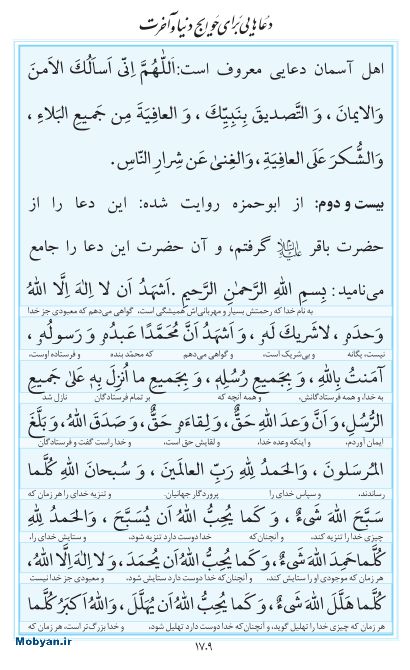 دعاهایی برای حوایج دنیا و آخرت
اهل آسمان دعایی معروف است: اَللّٰهُمَّ اِنّی اَسأَلُكَ الاَمنَ
وَالایمانَ ، وَ التَّصدیقَ بِنَبِیِّكَ ، وَ العافِیَةَ مِن جَمیعِ البَلاءِ ،
وَالشُّكرَ عَلَی العافِیَةِ ، وَالغِنیٰ عَن شِرارِ النّاسِ.
بیست و دوم: از ابوحمزه روایت شده: این دعا را از
حضرت باقر علیه‌السلام گرفتم، و آن حضرت این دعا را جامع
می‌نامید: بِسمِ اللهِ الرَّحمٰنِ الرَّحیمِ .اَشهَدُ اَن لا اِلٰهَ اِلَّا اللهُ
به نام خدا که رحمتش بسیار و مهربانی‌اش همیشگی است، گواهی می‌دهم که معبودی جز خدا
وَحدَهُ ، لاشَریكَ لَهُ ، وَ اَشهَدُ اَنَّ مُحَمَّدًا عَبدُهُ وَ رَسولُهُ ،
نیست، یگانه و بی‌شریک است، و گواهی می‌دهم که محمّد بنده و فرستاده اوست،
آمَنتُ بِاللهِ ، وَ بِجَمیعِ رُسُلِهِ ، وَ بِجَمیعِ ما اُنزِلَ بِهِ عَلیٰ جَمیعِ
به خدا، و همه فرستادگانش، و همه آنچه که بر تمام فرستادگان نازل شد
الرُّسُلِ، وَ اَنَّ وَعدَ اللهِ حَقٌّ ، وَلِقاءَهُ حَقٌّ ، وَ صَدَقَ اللهُ ، وَ بَلَّغَ
ایمان آوردم، و اینکه وعده خدا، و لقایش حق است، و خدا راست گفت و فرستادگان
المُرسَلونَ ، وَالحَمدُ لِلّٰهِ رَبِّ العالَمینَ ، وَ سُبحانَ اللهِ كُلَّما
رساندند، و سپاس خدای را پروردگار جهانیان. و تنزیه خدای را هر زمان که
سَبَّحَ اللهَ شَیءٌ ، وَ كَما یُحِبُّ اللهُ اَن یُسَبَّحَ ، وَ الحَمدُ لِلّٰهِ
چیزی خدا را تنزیه کند، و آنچنان که خدا دوست دارد تنزیه شود، و ستایش خدای را،
كُلَّما حَمِدَ اللهَ شَیءٌ، وَ كَما یُحِبُّ اللهُ اَن یُحمَدَ، وَ لا اِلٰهَ اِلَّا اللهُ،
هر زمان که موجودی او را ستایش کند، و آنچنان که خدا دوست دارد ستایش شود. و معبودی جز خدا نیست
كُلَّما هَلَّلَ اللهَ شَیءٌ، وَ كَما یُحِبُّ اللهُ اَن یُهَلَّلَ ، وَاللهُ اَكبَرُ كُلَّما
هر زمان که چیزی خدا را تهلیل گوید، و آنچنان که خدا دوست دارد تهلیل شود، و خدا بزرگ‌تر است، هر زمان که
۱۷۰۹
Mobyan.ir